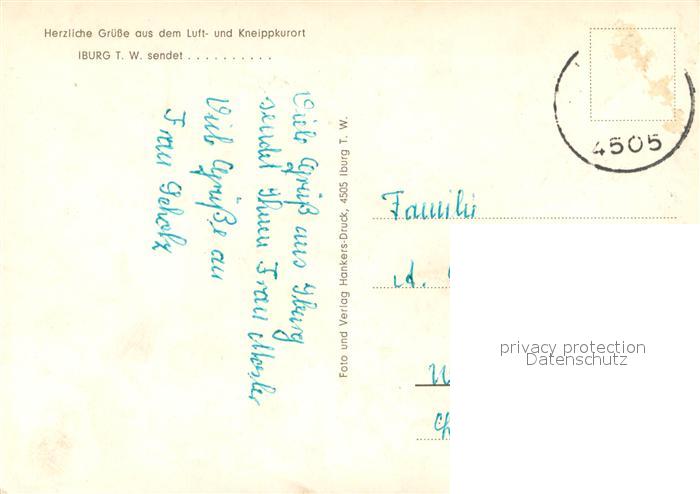 Herzliche Grüße aus dem Luft- und Kneippkurort
IBURG T. W. sendet . . . . . . . . . .
Viele Grüß aus Iburg
sendet Ihnen Frau
Viele Grüße an
Frau Scholz
Foto und Verlag Hankers-Druck, 4505 Iburg T. W.
4505
Famili
A.
privacy protection
Datenschutz